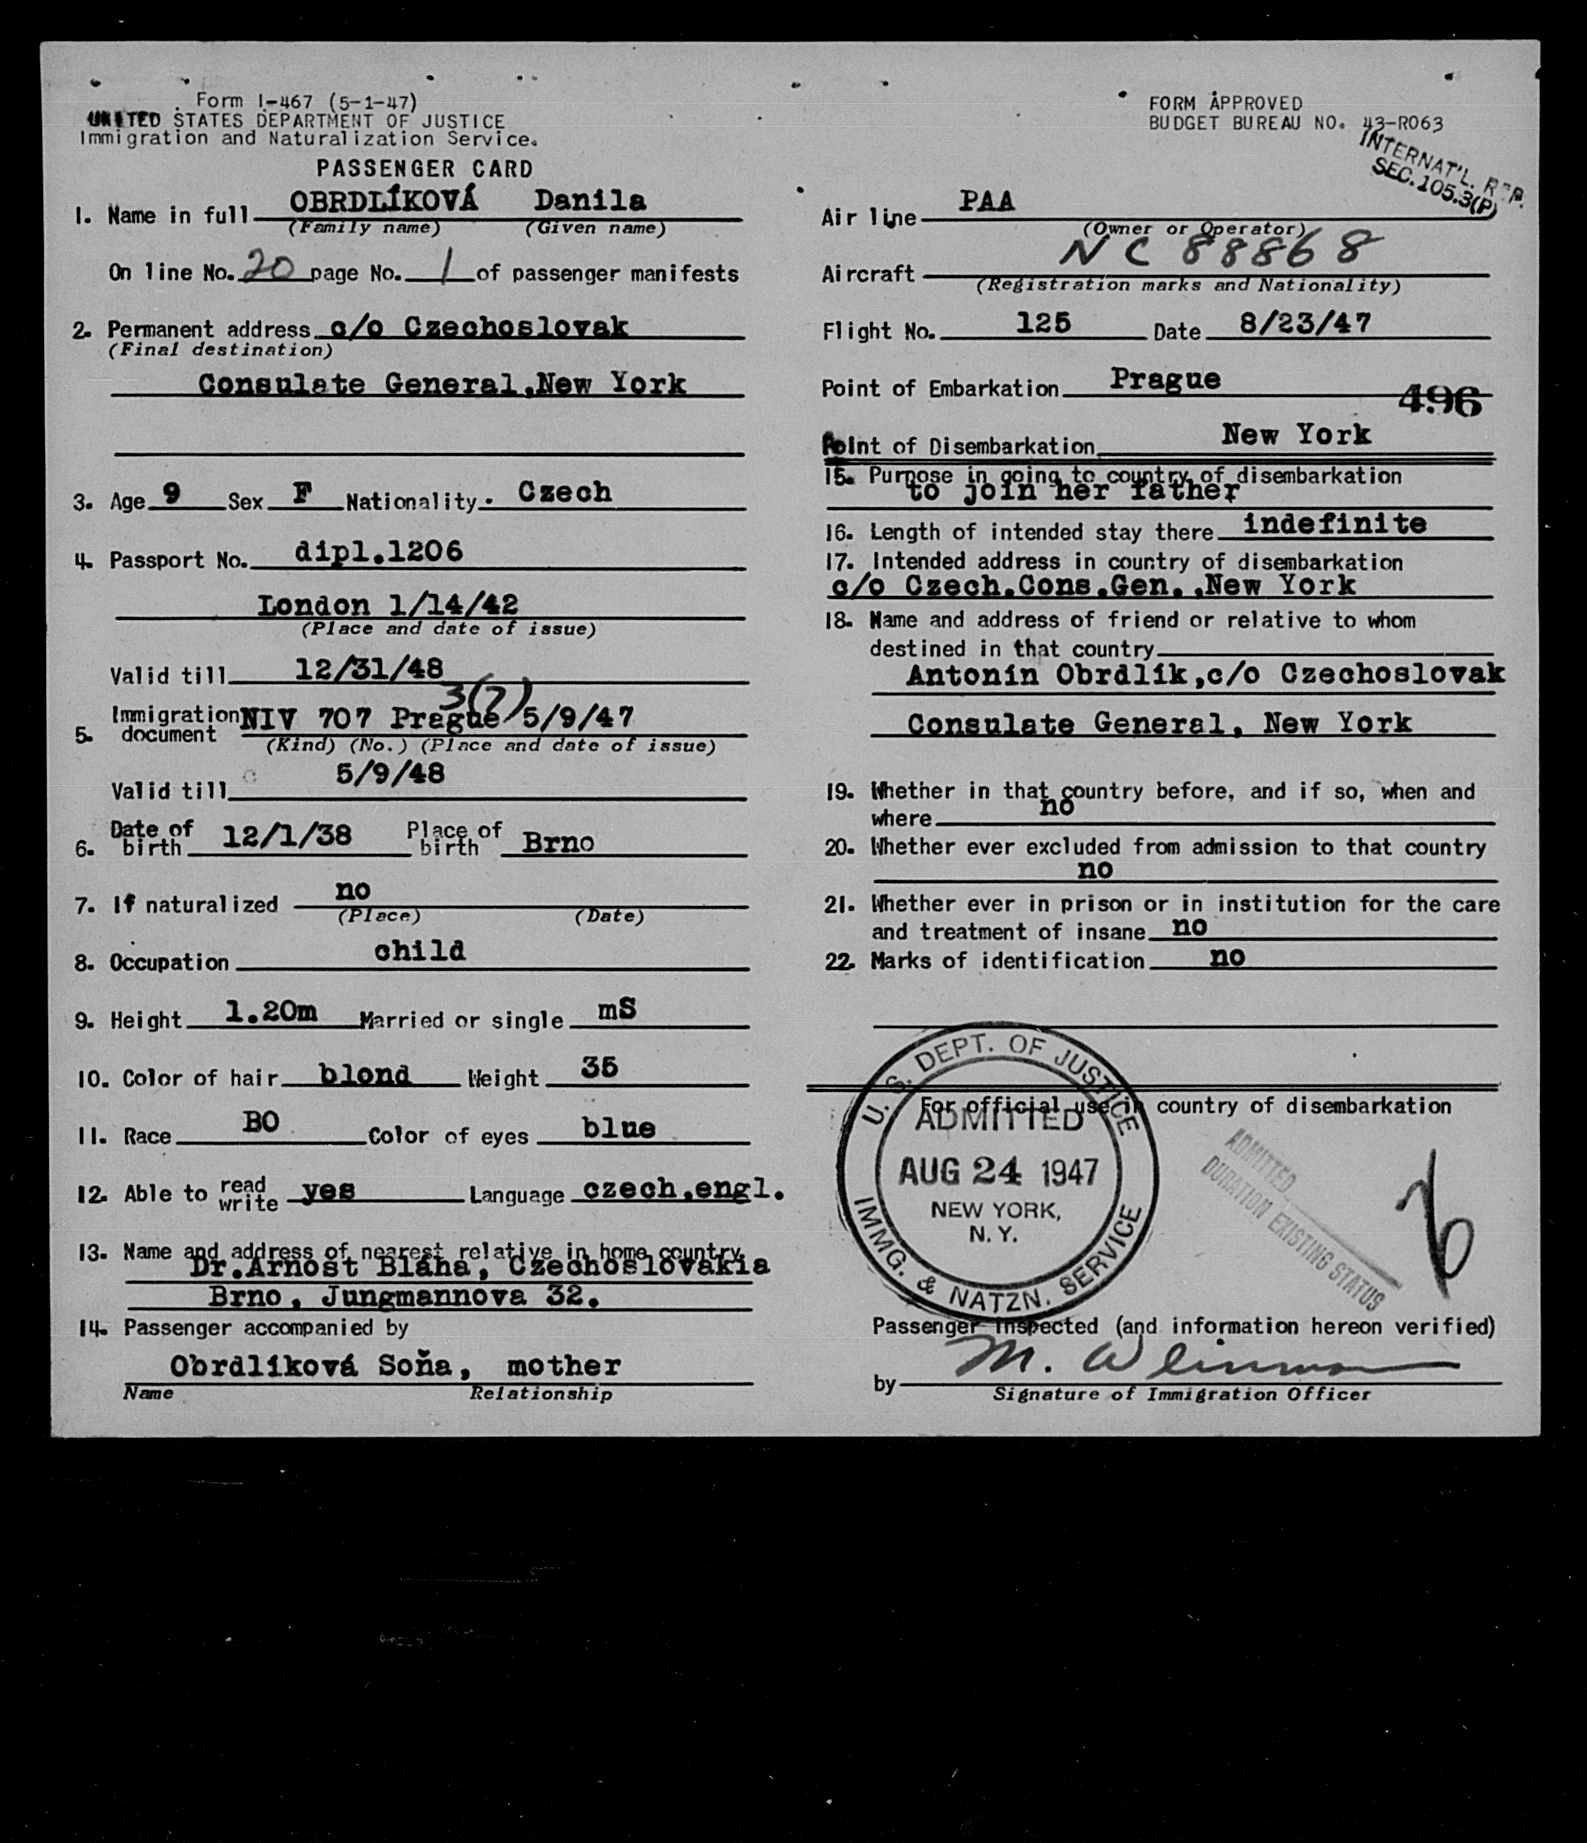 Form I-467 (5-1-47)
UNITED STATES DEPARTMENT OF JUSTICE
Immigration and Naturalization Service.
PASSENGER CARD
1. Name in full OBRDLÍKOVÁ Danila
(Family name) (Given name)
On line No. 20 page No. 1 of passenger manifests
2. Permanent address c/o Czechoslovak
(Final destination)
Consulate General,New York
3. Age 9 Sex F Nationality. Czech
4. Passport No. dipl.1206
London 1/14/42
(Place and date of issue)
Valid till 12/31/48
3(7)
5. Immigration document NIV 707 Prague 5/9/47
(Kind) (No.) (Place and date of issue)
Valid till 5/9/48
6. Date of birth 12/1/38 Place of birth Brno
7. If naturalized no
(Place) (Date)
8. Occupation child
9. Height 1.20m Married or single mS
10. Color of hair blond Weight 35
11. Race BO Color of eyes blue
12. Able to read write yes Language czech,engl.
13. Name and address of nearest relative in home country
Dr.Arnošt Bláha, Czechoslovakia
Brno, Jungmannova 32.
14. Passenger accompanied by
Obrdlíková Soňa, mother
Name Relationship
FORM APPROVED
BUDGET BUREAU NO. 43-R063
INTERNAT'L. REP.
SEC.105.3(P)
Air line PAA
(Owner or Operator)
Aircraft NC 88868
(Registration marks and Nationality)
Flight No. 125 Date 8/23/47
Point of Embarkation Prague
496
Point of Disembarkation New York
15. Purpose in going to country of disembarkation
to join her father
16. Length of intended stay there indefinite
17. Intended address in country of disembarkation
c/o Czech.Cons.Gen.,New York
18. Name and address of friend or relative to whom
destined in that country
Antonín Obrdlík,c/o Czechoslovak
Consulate General, New York
19. Whether in that country before, and if so, when and
where no
20. Whether ever excluded from admission to that country
no
21. Whether ever in prison or in institution for the care
and treatment of insane no
22. Marks of identification no
For official use in country of disembarkation
U. S. DEPT. OF JUSTICE
ADMITTED
AUG 24 1947
NEW YORK,
N. Y.
IMMG. & NATZN. SERVICE
ADMITTED
DURATION EXISTING STATUS
Passenger Inspected (and information hereon verified)
by M.
Signature of Immigration Officer